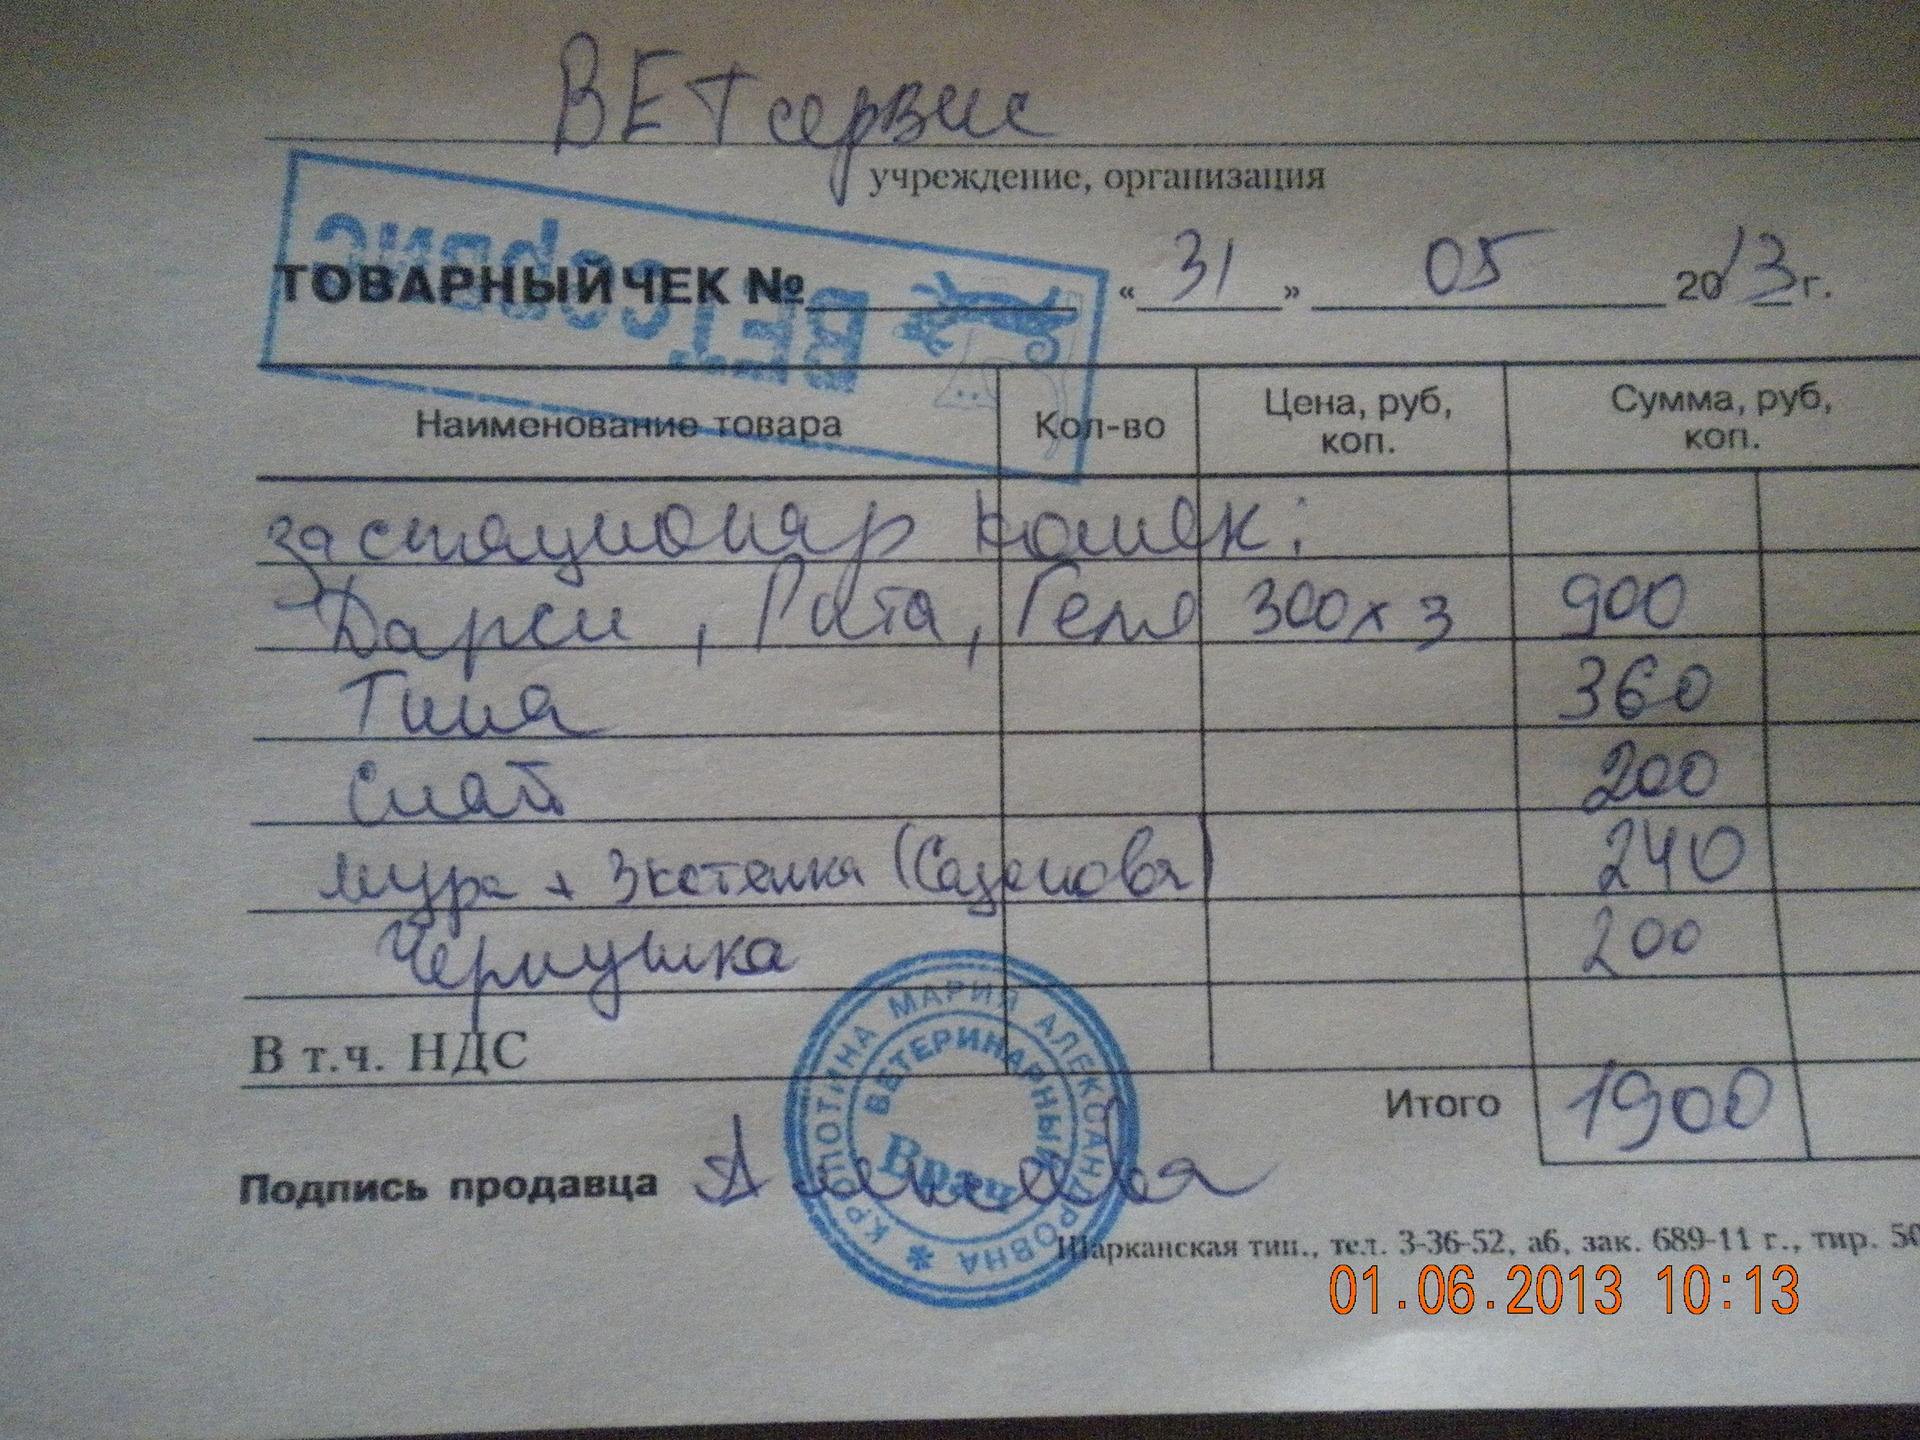 ВЕТсервис
учреждение, организация
ВЕТсервис
ТОВАРНЫЙ ЧЕК № «31» 05 2013 г.
Наименование товара Кол-во Цена, руб, коп. Сумма, руб, коп.
за стационар кошек:
Дарси, Рата, Геля 300х3 900
Тина 360
Снай 200
Мура + Экстемка (Сазонова) 240
Чернушка 200
В т.ч. НДС
Итого 1900
КРОПОТИНА МАРИЯ АЛЕКСАНДРОВНА
ВЕТЕРИНАРНЫЙ
Врач
Подпись продавца
Шарканская тип., тел. 3-36-52, а6, зак. 689-11 г., тир. 50
01.06.2013 10:13